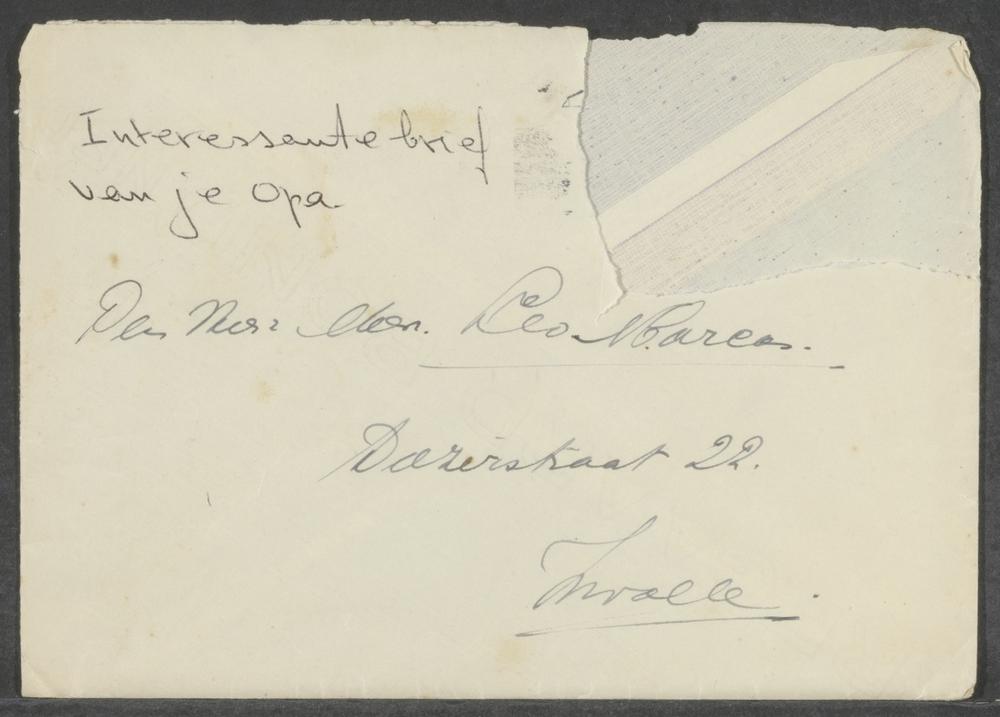 Interessante brief
van je Opa.
Den Heer Leo Marcus.
Dozerstraat 22.
Zwolle.